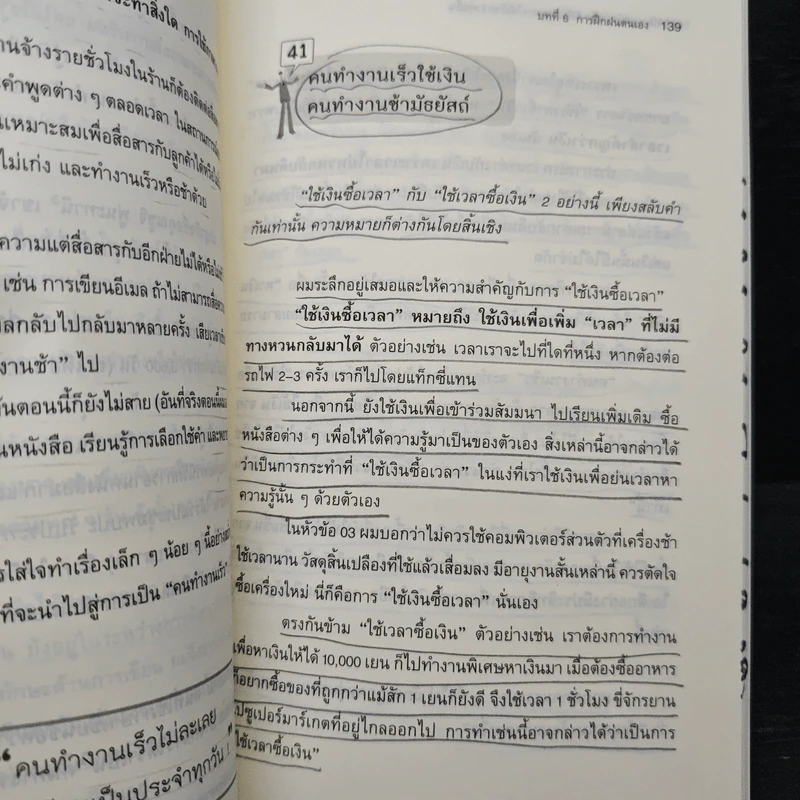 ระทำสิ่งใด การใช้
านจ้างรายชั่วโมงในร้านก็ต้องติดต่อสื่อ
คำพูดต่าง ๆ ตลอดเวลา ในสถานการณ์
นเหมาะสมเพื่อสื่อสารกับลูกค้าได้หรือไม่
ไม่เก่ง และทำงานเร็วหรือช้าด้วย
ความแต่สื่อสารกับอีกฝ่ายไม่ได้หรือไม่
เช่น การเขียนอีเมล ถ้าไม่สามารถสื่อ
ลกลับไปกลับมาหลายครั้ง เสียเวลา
งานช้า” ไป
ันตอนนี้ก็ยังไม่สาย (อันที่จริงตอนนี้
นหนังสือ เรียนรู้การเลือกใช้คำ และ
รใส่ใจทำเรื่องเล็ก ๆ น้อย ๆ นี้อย่าง
ที่จะนำไปสู่การเป็น “คนทำงานเร็ว”
“ คนทำงานเร็วไม่ละเลย
เป็นประจำทุกวัน ! ”
บทที่ 6 การฝึกฝนตนเอง 139
41
คนทำงานเร็วใช้เงิน
คนทำงานช้ามัธยัสถ์
“ใช้เงินซื้อเวลา” กับ “ใช้เวลาซื้อเงิน” 2 อย่างนี้ เพียงสลับคำ
กันเท่านั้น ความหมายก็ต่างกันโดยสิ้นเชิง
ผมระลึกอยู่เสมอและให้ความสำคัญกับการ “ใช้เงินซื้อเวลา”
“ใช้เงินซื้อเวลา” หมายถึง ใช้เงินเพื่อเพิ่ม “เวลา” ที่ไม่มี
ทางหวนกลับมาได้ ตัวอย่างเช่น เวลาเราจะไปที่ใดที่หนึ่ง หากต้องต่อ
รถไฟ 2–3 ครั้ง เราก็ไปโดยแท็กซี่แทน
นอกจากนี้ ยังใช้เงินเพื่อเข้าร่วมสัมมนา ไปเรียนเพิ่มเติม ซื้อ
หนังสือต่าง ๆ เพื่อให้ได้ความรู้มาเป็นของตัวเอง สิ่งเหล่านี้อาจกล่าวได้
ว่าเป็นการกระทำที่ “ใช้เงินซื้อเวลา” ในแง่ที่เราใช้เงินเพื่อย่นเวลาหา
ความรู้นั้น ๆ ด้วยตัวเอง
ในหัวข้อ 03 ผมบอกว่าไม่ควรใช้คอมพิวเตอร์ส่วนตัวที่เครื่องช้า
ใช้เวลานาน วัสดุสิ้นเปลืองที่ใช้แล้วเสื่อมลง มีอายุงานสั้นเหล่านี้ ควรตัดใจ
ซื้อเครื่องใหม่ นี่ก็คือการ “ใช้เงินซื้อเวลา” นั่นเอง
ตรงกันข้าม “ใช้เวลาซื้อเงิน” ตัวอย่างเช่น เราต้องการทำงาน
เพื่อหาเงินให้ได้ 10,000 เยน ก็ไปทำงานพิเศษหาเงินมา เมื่อต้องซื้ออาหาร
ก็อยากซื้อของที่ถูกกว่าแม้สัก 1 เยนก็ยังดี จึงใช้เวลา 1 ชั่วโมง ขี่จักรยาน
ไปซูเปอร์มาร์เกตที่อยู่ไกลออกไป การทำเช่นนี้อาจกล่าวได้ว่าเป็นการ
“ใช้เวลาซื้อเงิน”